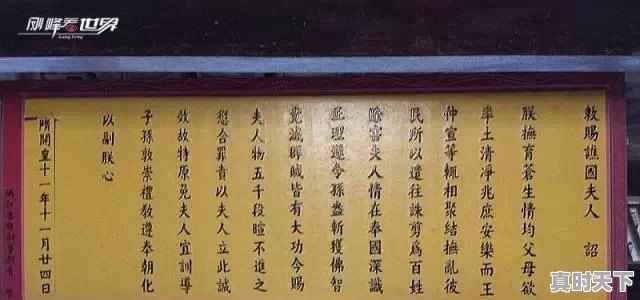 刚峰看世界
Gang Feng
敕賜譙國夫人 詔
朕撫育蒼生情均父母欲
率土清凈兆庶安樂而王
仲宣等輒相聚結撫亂彼
民所以遣往誅剪爲百姓
除害夫人情在奉國深識
正理遂令孫盎斬獲佛智
竟滅群賊皆有大功今賜
夫人物五千段暄不進之
愆合罪責以夫人立此誠
效故特原免夫人宜訓導
子孫敦崇禮教遵奉朝化
以副朕心
隋開皇十一年十一月廿四日
真时天下